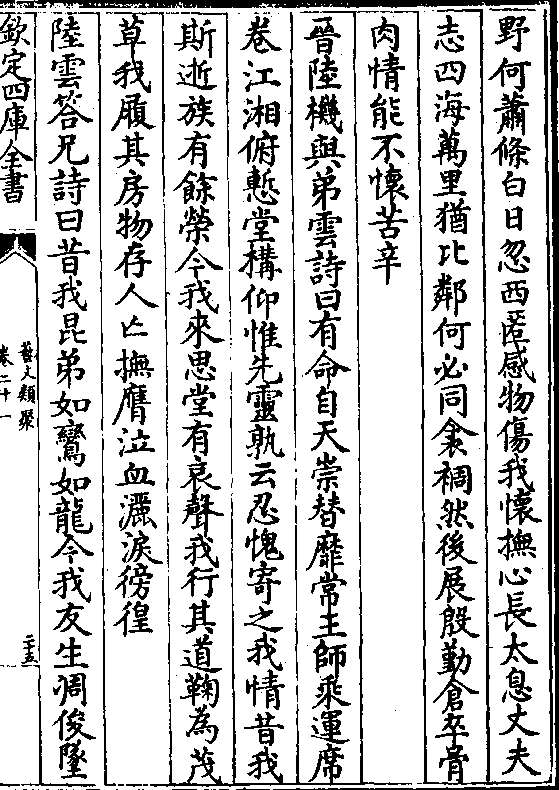 野何蕭條白日忽西匿感物傷我懷撫心長太息丈夫
志四海萬里猶比鄰何必同衾裯然後展殷勤倉卒骨
肉情能不懷苦辛
晉陸機與弟雲詩曰有命自天崇替靡常王師乗運席
卷江湘俯慙堂構仰惟先靈孰云忍愧寄之我情昔我
斯逝族有餘榮今我來思堂有哀聲我行其道鞠為茂
草我履其房物存人亡撫膺泣血灑淚徬徨
陸雲答兄詩曰昔我昆弟如鸞如龍今我友生凋俊墜
欽定四庫全書
藝文類聚
卷二十一
二十五